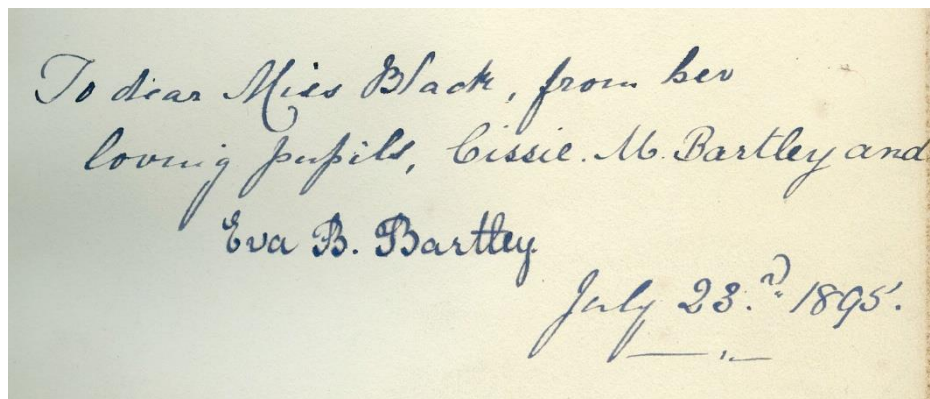 To dear Miss Black, from her
loving pupils, Cissie. M. Bartley and
Eva B. Bartley.
July 23.rd 1895.